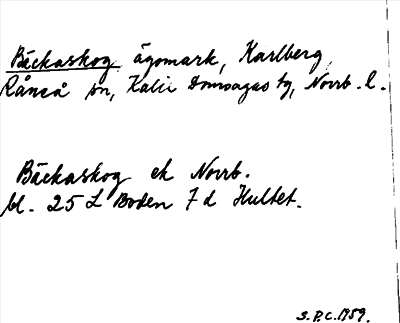 Bäckaskog ägomark, Karlberg,
Råneå sn, Kalix Domsagas tg, Norrb. l.
Bäckaskog ek Norrb.
bl. 25 L Boden 7 d Hultet.
S.P.C. 1959.